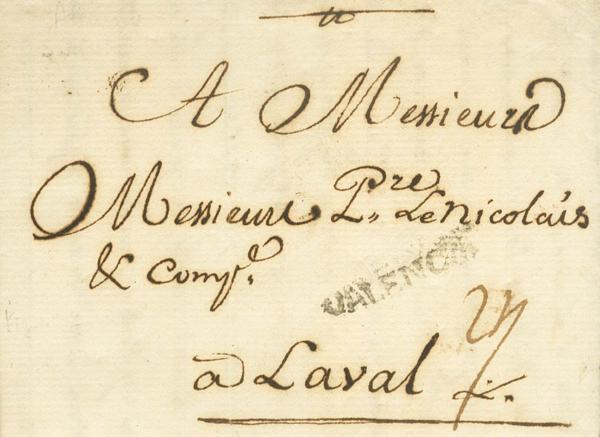 A Messieurs
Messieurs Pre L. LeNicolais
& Compe.
VALENCE
à Laval